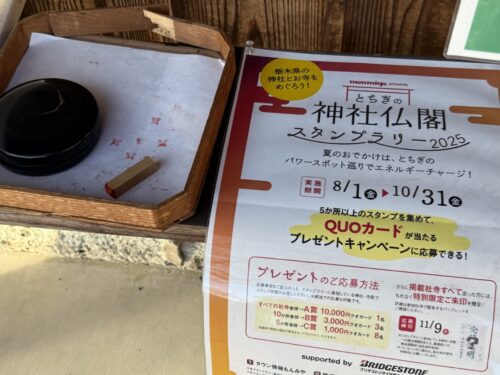 栃木県の
神社とお寺を
めぐろう!
monmiya presents
とちぎの
神社仏閣
スタンプラリー2025
夏のおでかけは、とちぎの
パワースポット巡りでエネルギーチャージ!
実施
期間
8/1金→10/31金
5か所以上のスタンプを集めて、
QUOカードが当たる
プレゼントキャンペーンに応募できる!
プレゼントのご応募方法
すべての社寺参拝→A賞 10,000円クオカード 1名
10か所参拝→B賞 3,000円クオカード 3名
5か所参拝→C賞 1,000円クオカード 8名
さらに掲載社寺すべて巡った方には、
もれなく特別限定ご朱印を贈呈!
応募
締切
11/9
supported by BRIDGESTONE
タウン情報もんみや